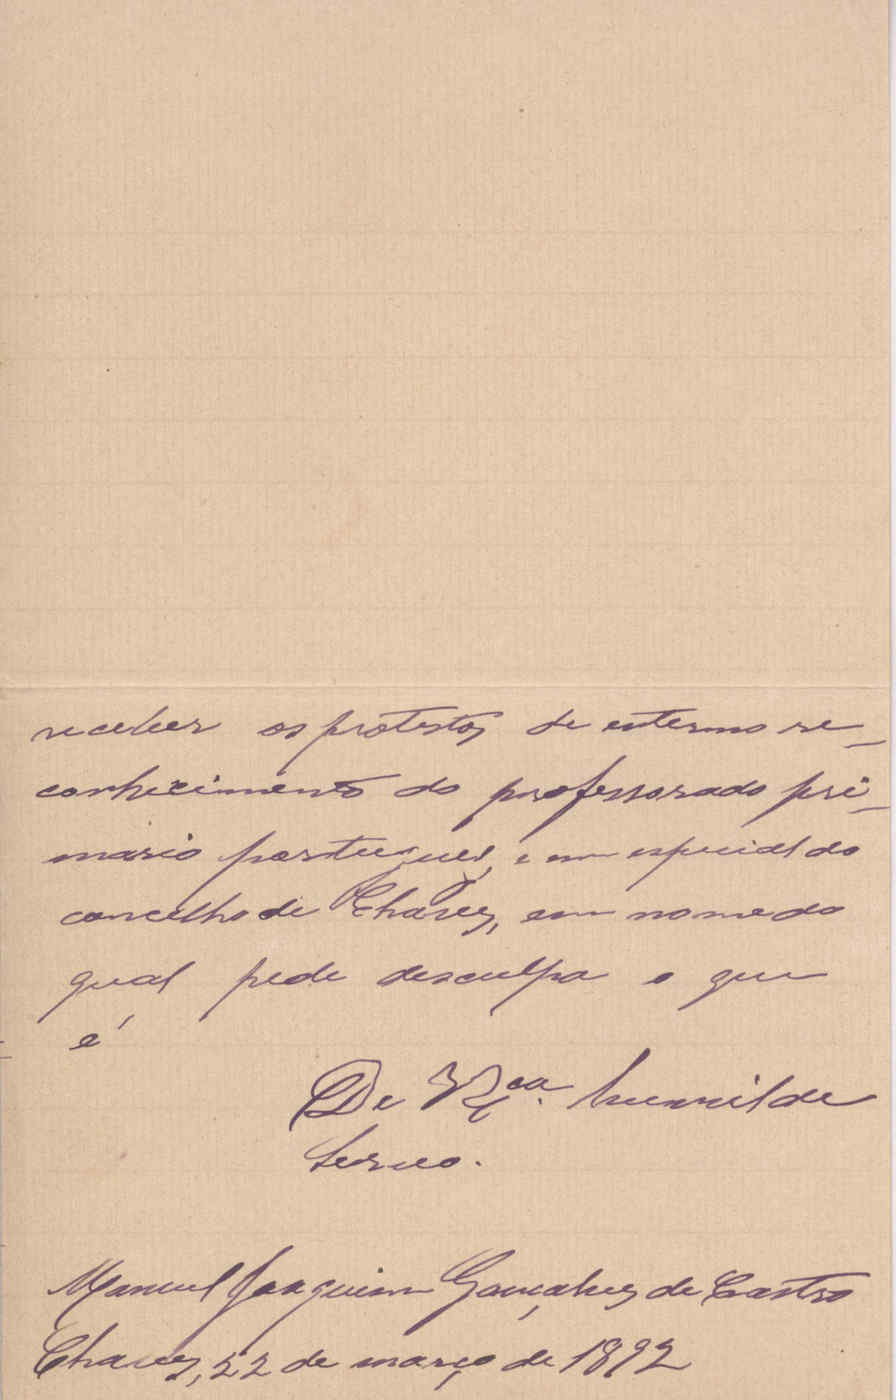 receber os protestos de externo re-
conhecimento do professorado pri-
mario portuguez, e em especial do
concelho de Chaves, em nome do
qual pede desculpa o que
é
De V. Ex.cia humilde
servo.
Manuel Joaquim Gonçalves de Castro
Chaves, 22 de março de 1892